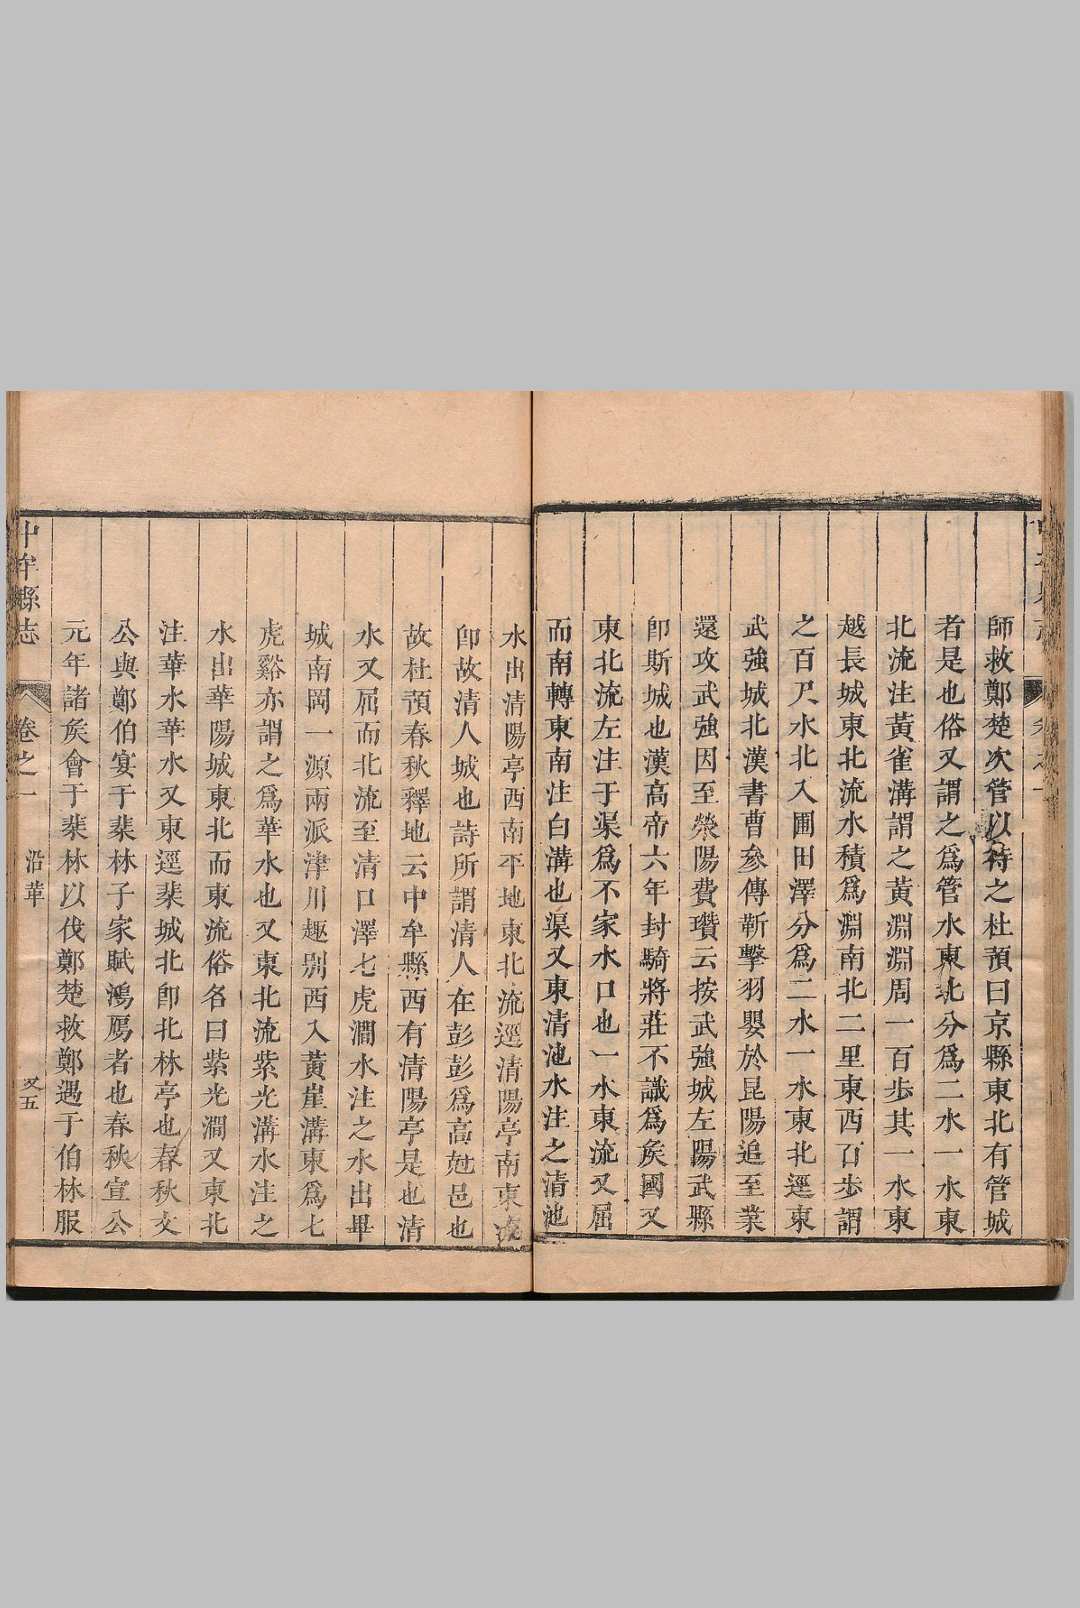 師救鄭楚次管以待之杜預曰京縣東北有管城
者是也俗又謂之爲管水東北分爲二水一水東
北流注黃雀溝謂之黃淵淵周一百步其一水東
越長城東北流水積爲淵南北二里東西百步謂
之百尺水北入圃田澤分爲二水一水東北逕東
武強城北漢書曹參傳靳擊羽嬰於昆陽追至業
還攻武強因至滎陽費瓚云按武強城左陽武縣
卽斯城也漢高帝六年封騎將莊不識爲矦國又
東北流左注于渠爲不家水口也一水東流又屈
而南轉東南注白溝也渠又東清池水注之清池
水出清陽亭西南平地東北流逕清陽亭南東流
卽故清人城也詩所謂清人在彭彭爲高尅邑也
故杜預春秋釋地云中牟縣西有清陽亭是也清
水又屈而北流至清口澤七虎澗水注之水出畢
城南岡一源兩派津川趣别西入黃崖溝東爲七
虎谿亦謂之爲華水也又東北流紫光溝水注之
水出華陽城東北而東流俗名曰紫光澗又東北
注華水華水又東逕棐城北卽北林亭也春秋文
公與鄭伯宴于棐林子家賦鴻鴈者也春秋宣公
元年諸矦會于棐林以伐鄭楚救鄭遇于伯林服
中牟縣志 卷之一 沿革 又五